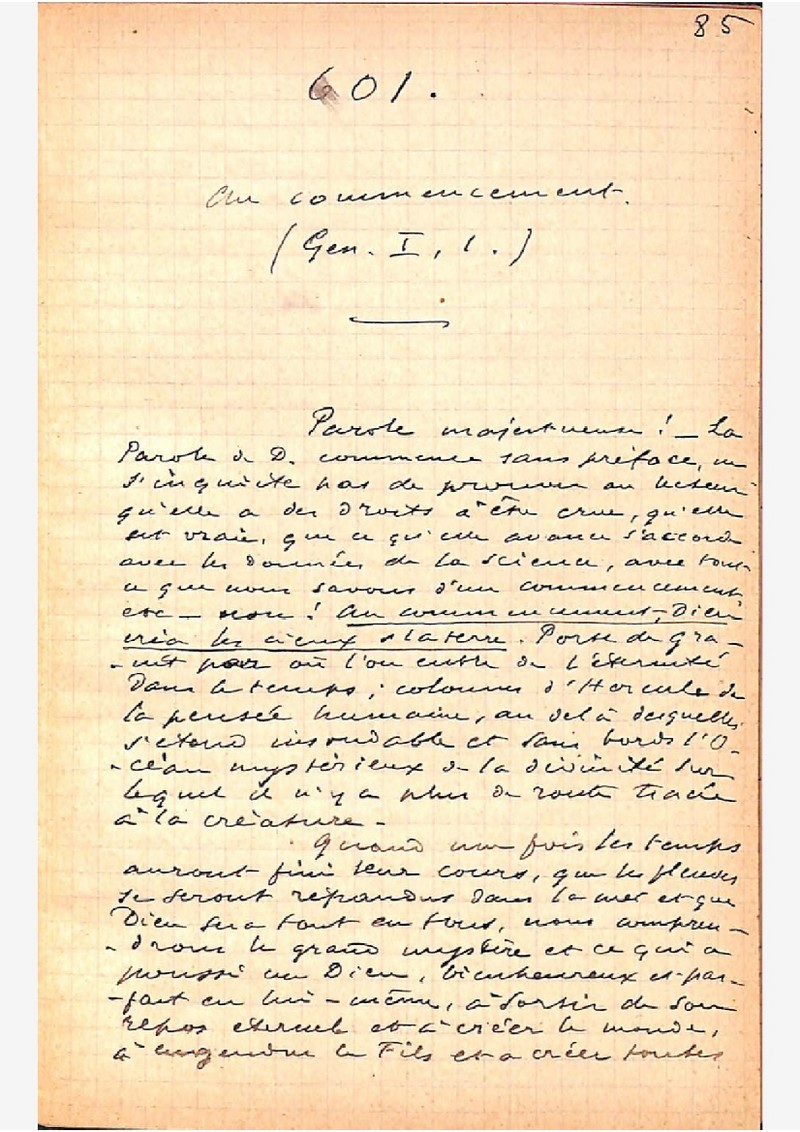 85
601.
Au commencement.
(Gen. I, 1.)
Parole majestueuse! — La
Parole de D. commence sans préface, ne
s'inquiète pas de prouver au lecteur
qu'elle a des droits à être crue, qu'elle
est vraie, que ce qu'elle avance s'accorde
avec les données de la science, avec tout
ce que nous savons d'un commencement
etc — non! Au commencement, Dieu
créa les cieux & la terre. Porte de gra-
-nit par où l'on entre de l'éternité
dans le temps; colonnes d'Hercule de
la pensée humaine, au delà desquelles
s'étend insondable et sans bords l'O-
-céan mystérieux de la divinité sur
lequel il n'y a plus de route tracée
à la créature.
Quand une fois les temps
auront fini leur cours, que les fleuves
se seront répandus dans la mer et que
Dieu sera tout en tous, nous compren-
-drons le grand mystère et ce qui a
poussé un Dieu, bienheureux et par-
-fait en lui-même, à sortir de son
repos éternel et à créer le monde,
à engendrer le Fils et a créer toutes